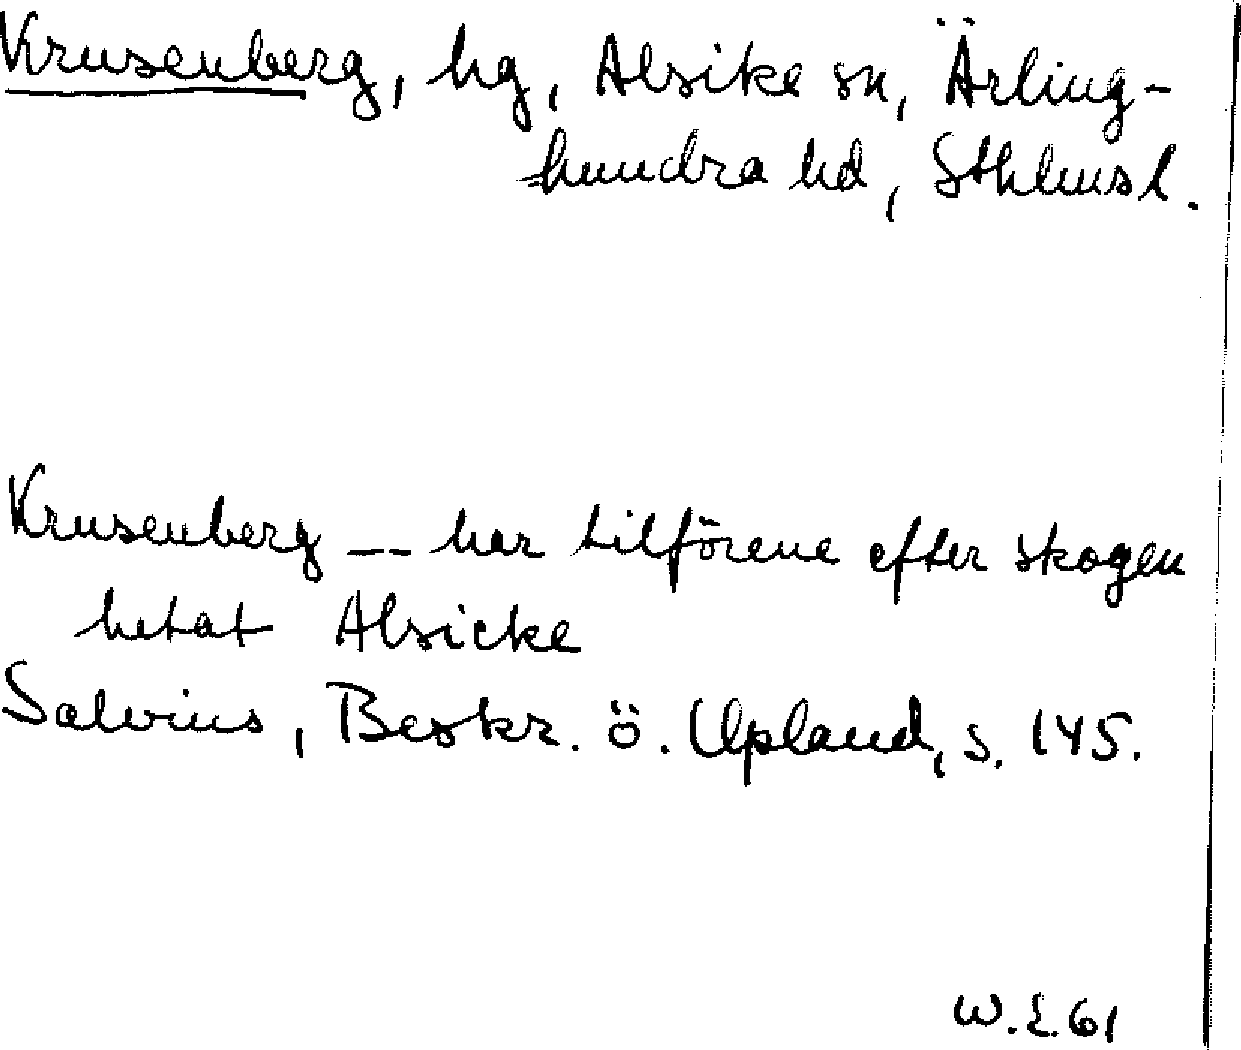 Krusenberg, hg, Alsike sn, Ärling-
hundra hd, Sthlmsl.
Krusenberg -- har tilförene efter skogen
hetat Alsicke
Salvius, Beskr. ö. Upland, s. 145.
W.E.61